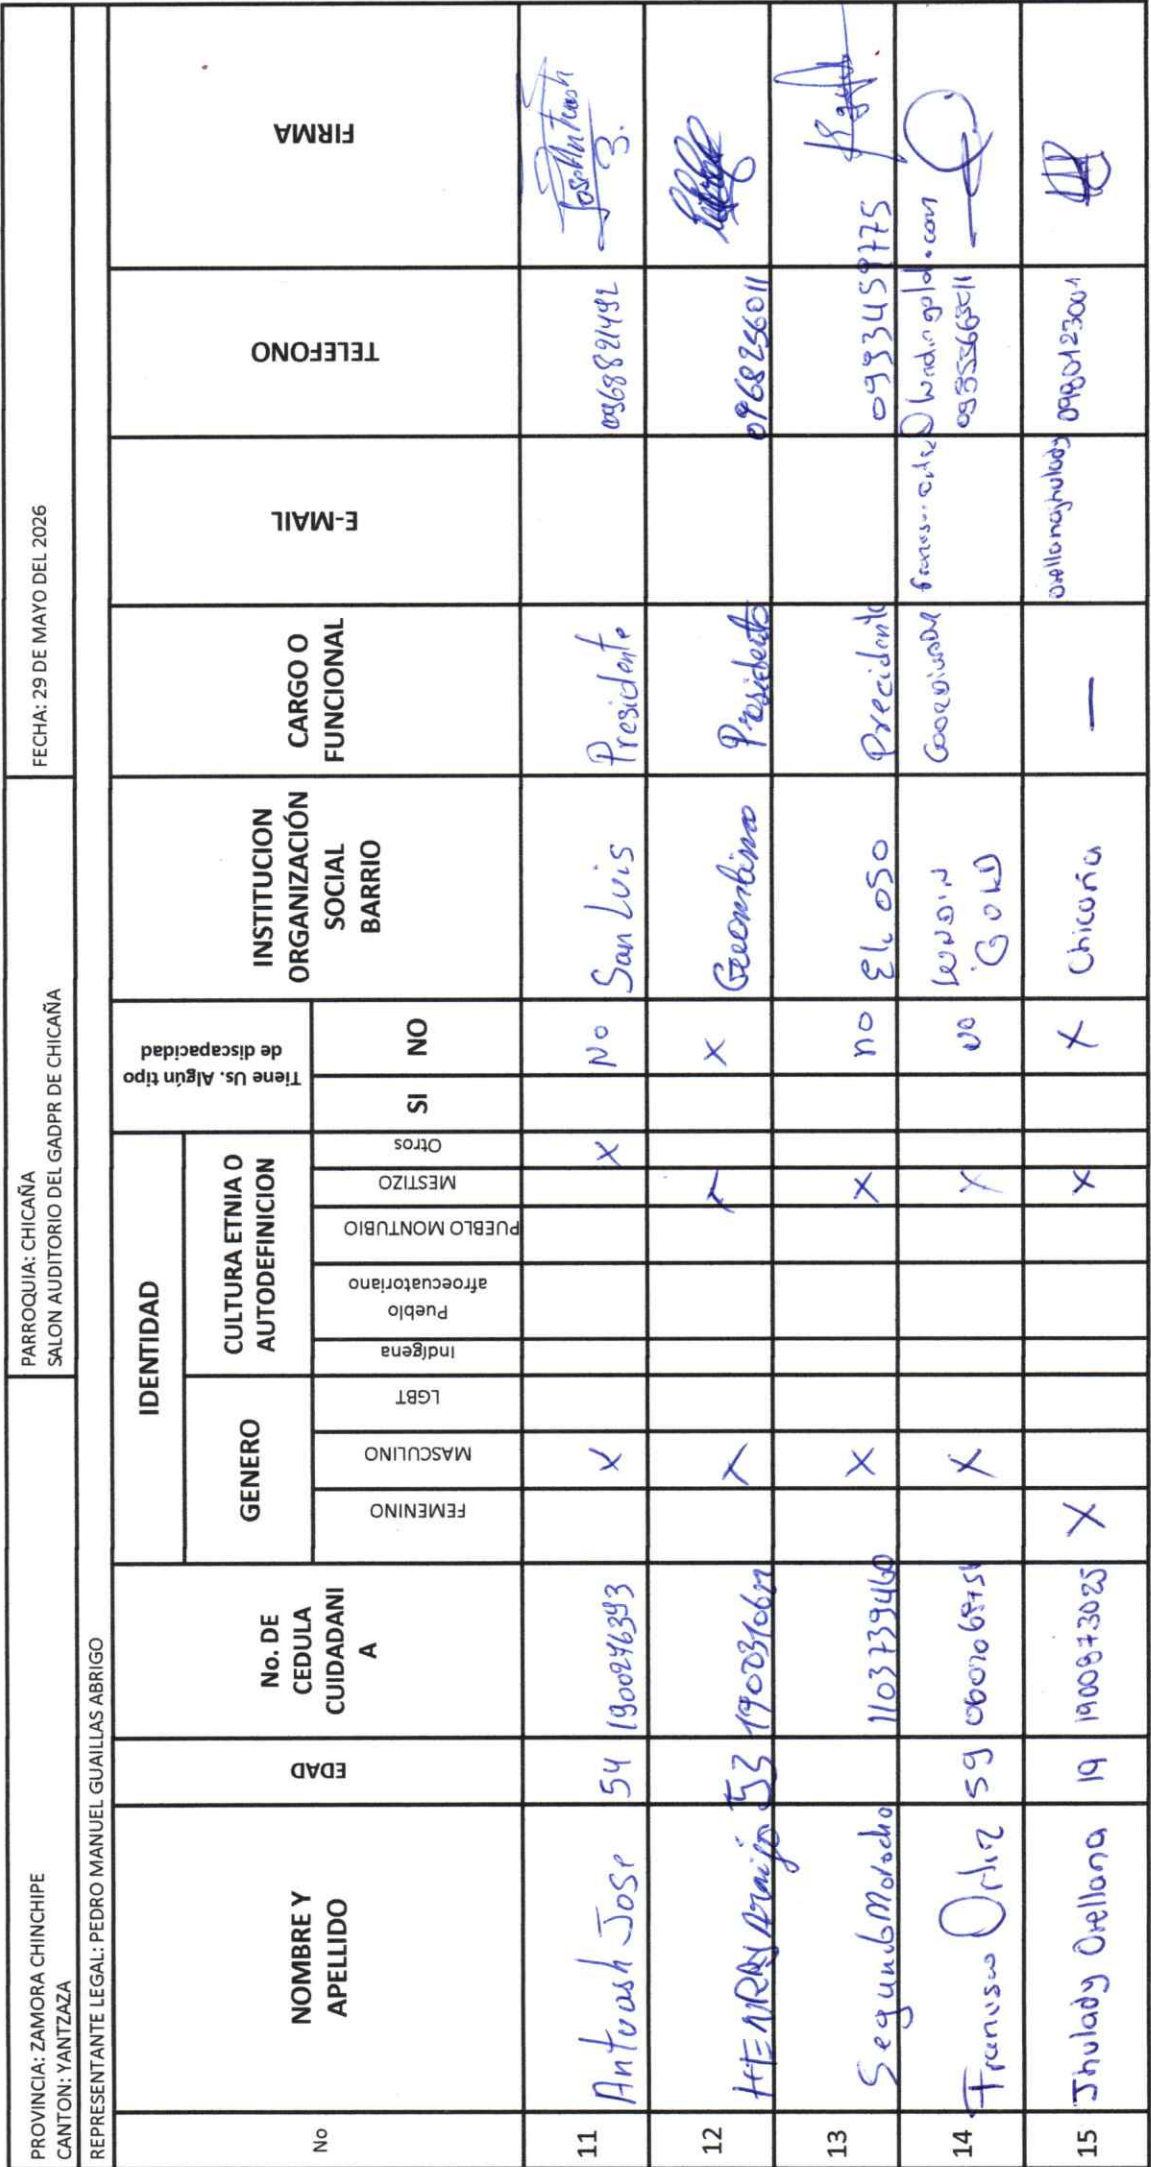 PROVINCIA: ZAMORA CHINCHIPE
CANTON: YANTZAZA
PARROQUIA: CHICAÑA
SALON AUDITORIO DEL GADPR DE CHICAÑA
FECHA: 29 DE MAYO DEL 2026
REPRESENTANTE LEGAL: PEDRO MANUEL GUAILLAS ABRIGO
No
NOMBRE Y APELLIDO
EDAD
No. DE CEDULA CUIDADANI A
IDENTIDAD
GENERO
FEMENINO
MASCULINO
LGBT
CULTURA ETNIA O AUTODEFINICION
Indígena
Pueblo afroecuatoriano
PUEBLO MONTUBIO
MESTIZO
Otros
Tiene Us. Algún tipo de discapacidad
SI
NO
INSTITUCION ORGANIZACIÓN SOCIAL BARRIO
CARGO O FUNCIONAL
E-MAIL
TELEFONO
FIRMA
11 Antuash Jose 54 1900276393 X X No San Luis Presidente 0968821492
12 Araijo 53 X X X Presidente 0968256011
13 Segundo Morocho 1103739460 X X no El oso Precidente 0993459775
14 Ortiz 59 X X no LUNDIN GOLD
15 Jhulady Orellana 19 1900873025 X X X Chicaña — orellanajhulady 0980123001